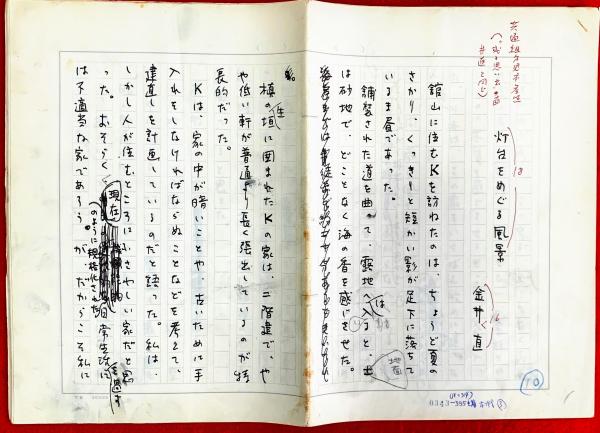 灯台をめぐる風景
金井 直
館山に住むKを訪ねたのは、ちょうど夏の
さかり、くっきりと短かい影が足下に落ちて
いるま昼であった。
舗装された道を曲って、露地へ入ると、土
は
地面
は砂地で、どことなく海の香を感じさせた。
槙の生垣に囲まれたKの家は、二階建で、や
や低い軒が普通より長く張出しているのが特
長的だった。
Kは、家の中が暗いことや、古いために手
入れをしなければならぬことなどを考えて、
建直しを計画しているのだと語った。私は、
しかし人が住むところにふさわしい家だと思
った。おそらく現在
のように規格化された
日常生活に
は不適当な家であろう。が、だからこそ私に
10
0343-395